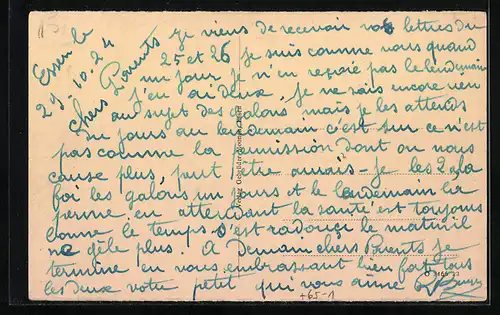 Essen le
29.10.24
Chers Parents Je viens de recevoir vos lettres du
25 et 26 Je suis comme vous quand
un jour Je n'en reçoie pas le lendemain
j'en ai deux, Je ne sais encore rien
au sujet des galons mais je les attends
du jours au lendemain c'est sur ce n'est
pas comme la permission dont on nous
cause plus, peut être aurais-je les 2 a la
foi les galons un jours et le lendemain la
perme, en attendant la santé est toujours
bonne le temps s'est radouci le matin il
ne gèle plus. A Demain chers Parents Je
termine en vous embrassant bien fort tous
les deux votre petit qui vous aime
+65-1